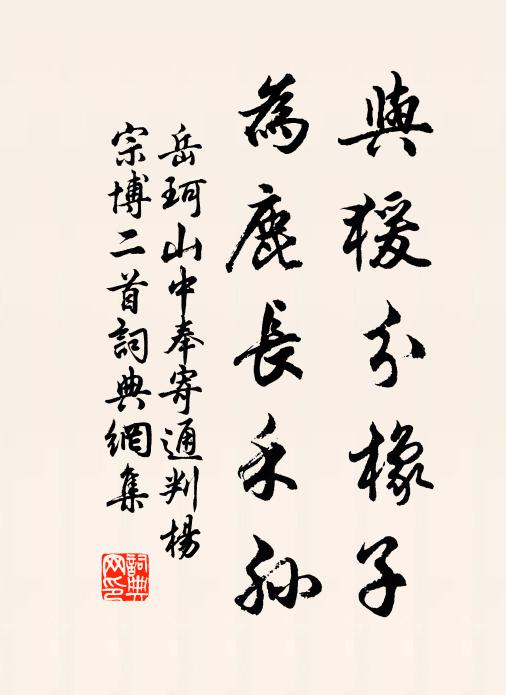 與猨分橡子
為鹿長禾孫
岳珂山中奉寄通判楊
宗博二首詞典網集
詞典
网印